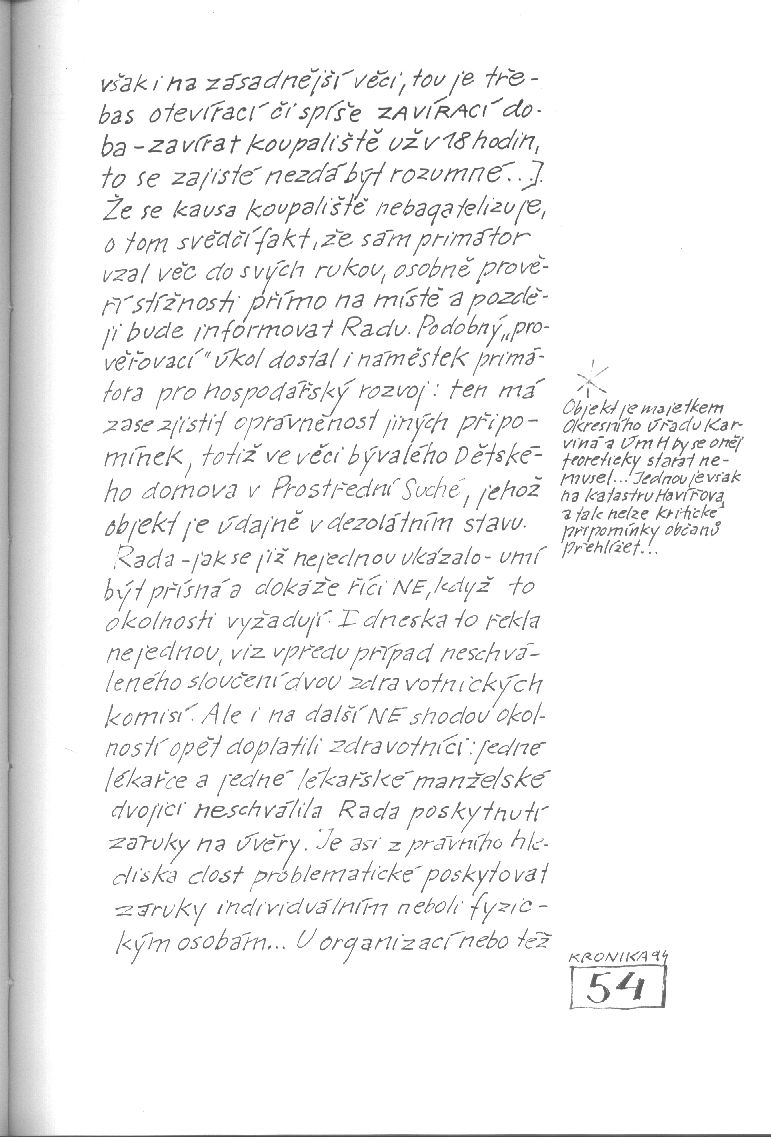 však i na zásadnější věci, tou je tře-
bas otevírací či spíše ZAVÍRACÍ do-
ba - zavírat koupaliště už v 18 hodin,
to se zajisté nezdá být rozumné...].
Že se kausa koupaliště nebagatelizuje,
o tom svědčí fakt, že sám primátor
vzal věc do svých rukou, osobně prově-
ří stížnosti přímo na místě a pozdě-
ji bude informovat Radu. Podobný „pro-
věřovací" úkol dostal i náměstek primá-
tora pro hospodářský rozvoj: ten má
zase zjistit oprávněnost jiných připo-
mínek, totiž ve věci bývalého Dětské-
ho domova v Prostřední Suché, jehož
objekt je údajně v dezolátním stavu.
Rada - jak se již nejednou ukázalo - umí
být přísná a dokáže říci NE, když to
okolnosti vyžadují. I dneska to řekla
nejednou, viz vpředu případ neschvá-
leného sloučení dvou zdravotnických
komisí. Ale i na další NE shodou okol-
ností opět doplatili zdravotníci: jedné
lékařce a jedné lékařské manželské
dvojici neschválila Rada poskytnutí
záruky na úvěry. Je asi z právního hle-
diska dost problematické poskytovat
záruky individuálním neboli fyzic-
kým osobám... U organizací nebo též
Objekt je majetkem
Okresního úřadu Kar-
viná a ÚmH by se oněj
teoreticky starat ne-
musel... Jednou je však
na katastru Havířova,
a tak nelze kritické
připomínky občanů
přehlížet...
KRONIKA 94
54